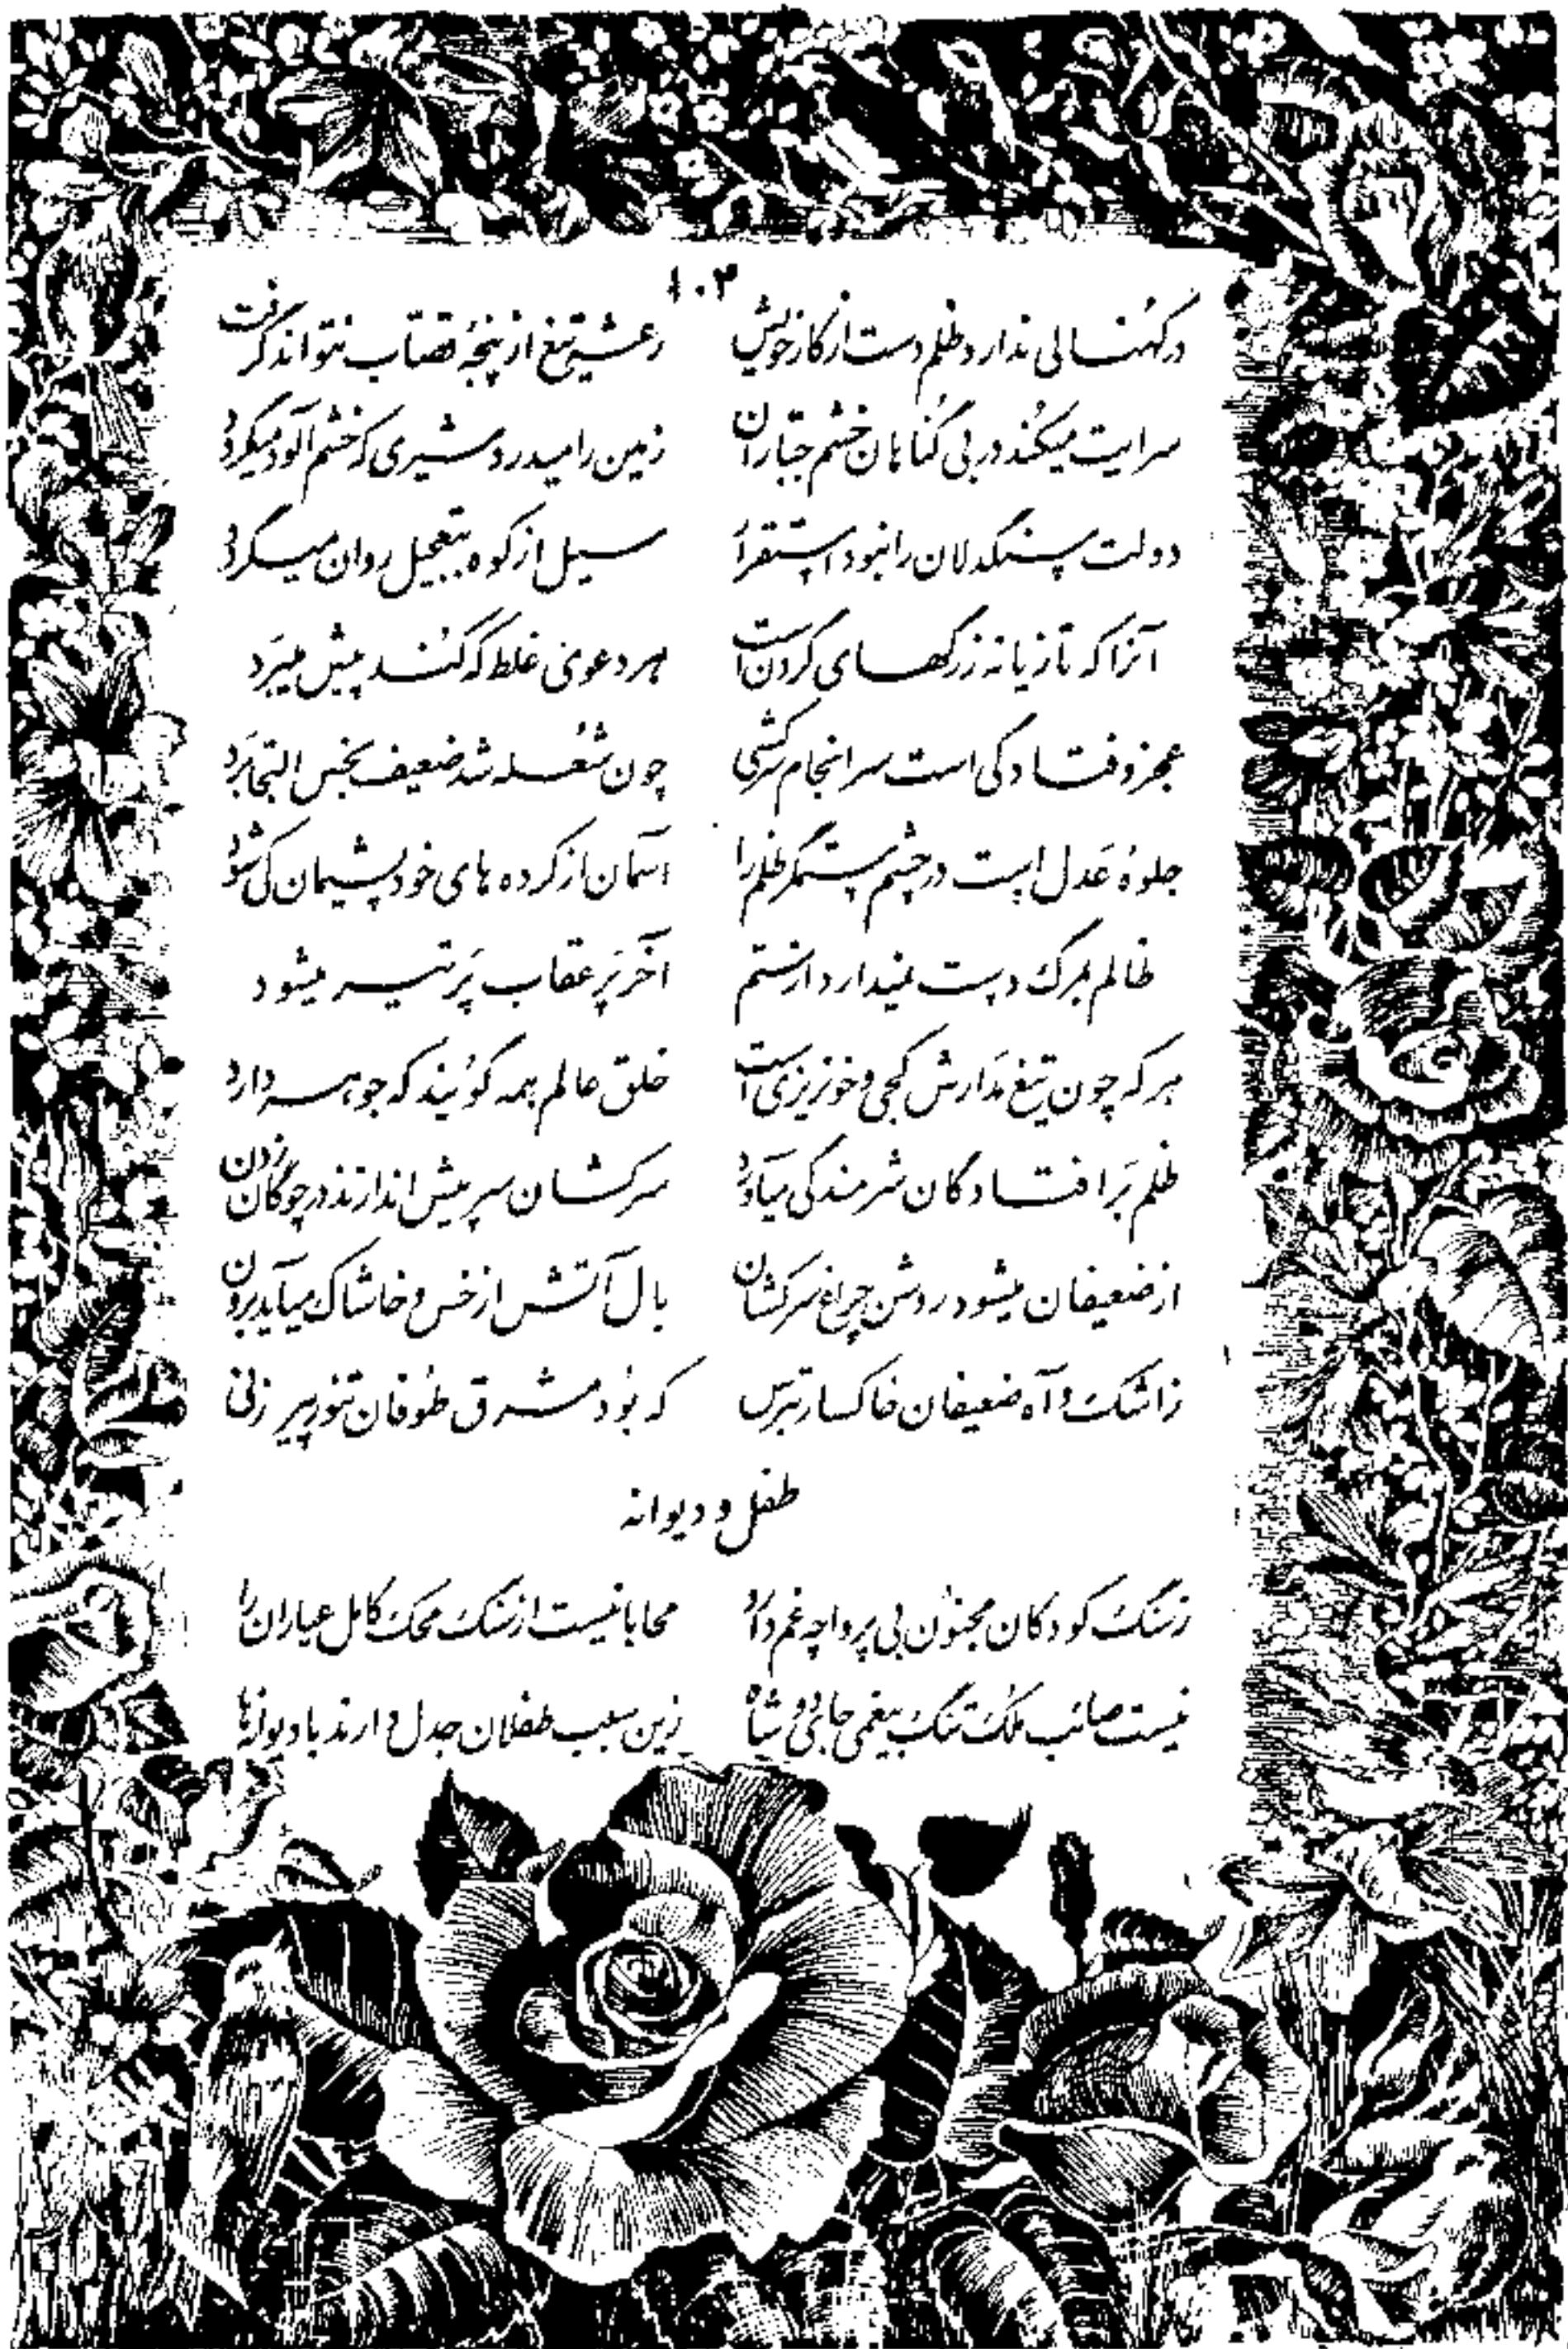 ۱۰۳
در کهنسالی ندارد ظلم دست از کار خویش رعشه تیغ از پنجهٔ قصّاب نتواند گرفت
سرایت میکُند در بی گُناهان خشم جبّاران زمین را میدرد شیری که خشم آلود میگردد
دولت سنگدلان را نبود استقرار سیل از کوه بتعجیل روان میگردد
آنرا که تازیانه ز رگهای گردن است هر دعوی غلط که کُند پیش میبَرَد
عجز و فتادگی است سرانجام سرکشی چون شُعله شد ضعیف بخس التجا بَرَد
جلوهٔ عَدل است در چشم ستمگر ظلم را آسمان از کرده های خود پشیمان کی شود
ظالم بمرگ دست نمیدارد از ستم آخر پَر عقاب پَر تیر میشود
هر که چون تیغ مَدارش کجی و خونریزی است خلق عالم همه گویند که جوهر دارد
ظلم بَر افتادگان شرمندگی میآورد سرکشان سر پیش اندازند در چوگان زدن
از ضعیفان میشود روشن چراغ سرکشان بال آتش از خس و خاشاک میآید برون
ز اشک و آه ضعیفان خاکسار بترس که بُود مشرق طوفان تنور پیر زنی
طفل و دیوانه
ز سنگ کودکان مجنون بی پروا چه غم دارد محابا نیست از سنگ محک کامل عیاران را
نیست صائب ملک تنگ بیغمی جای دو شاه زین سبب طفلان جدل دارند با دیوانه‌ها